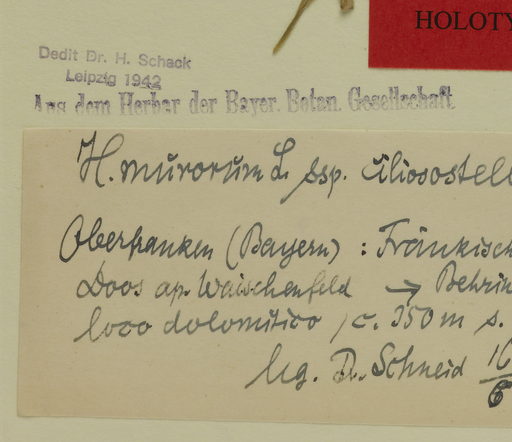 HOLOTY
Dedit Dr. H. Schack
Leipzig 1942
Aus dem Herbar der Bayer. Botan. Gesellschaft
H. murorum L. ssp. ciliosostell
Oberfranken (Bayern) : Fränkisch
Doos ap. Waischenfeld → Behrin
loco dolomitico , c. 350 m s.
leg. Dr. Schneid 16
6